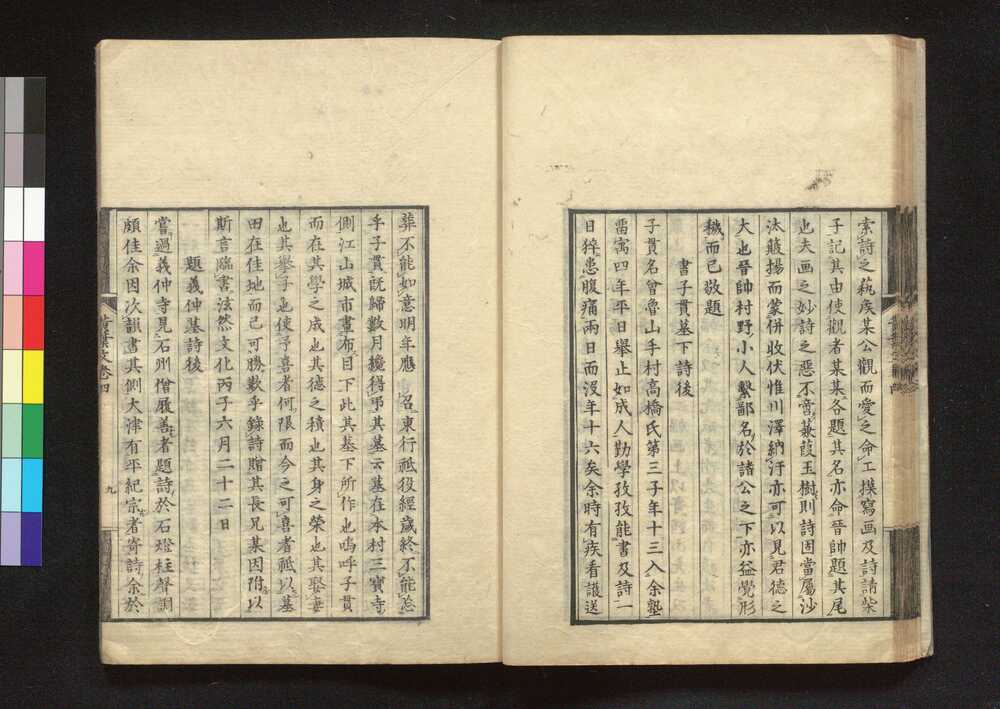 索詩之藐疾某公觀而愛之命工摸寫画及詩請柴
子記其由使觀者某某各題其名亦命晉帥題其尾
也夫画之妙詩之惡不啻蒹葭玉樹則詩固當屬沙
汰簸揚而蒙併收伏惟川澤納汙亦可以見君德之
大也晉帥村野小人繫鄙名於諸公之下亦益覺形
穢而已敬題
書子貫墓下詩後
子貫名會魯山手村高橋氏第三子年十三入余塾
雷寓四年平日舉止如成人勤學孜孜能書及詩一
日猝患腹痛兩日而沒年十六矣余時有疾看護送
葬不能如意明年應召東行祗役經歲終不能忘
乎子貫既歸數月纔得弔其墓云墓在本村三寶寺
側江山城市畫布目下此其墓下所作也嗚呼子貫
而在其學之成也其德之積也其身之榮也其娶妻
也其擧子也使予喜者何限而今之可喜者祗以墓
田在佳地而已可勝歎乎錄詩贈其長兄某因附以
斯言臨書泫然文化丙子六月二十二日
題義仲墓詩後
嘗過義仲寺見石州僧履善者題詩於石燈柱聲調
頗佳余因次韻書其側大津有平紀宗者寄詩余於
卷四
九